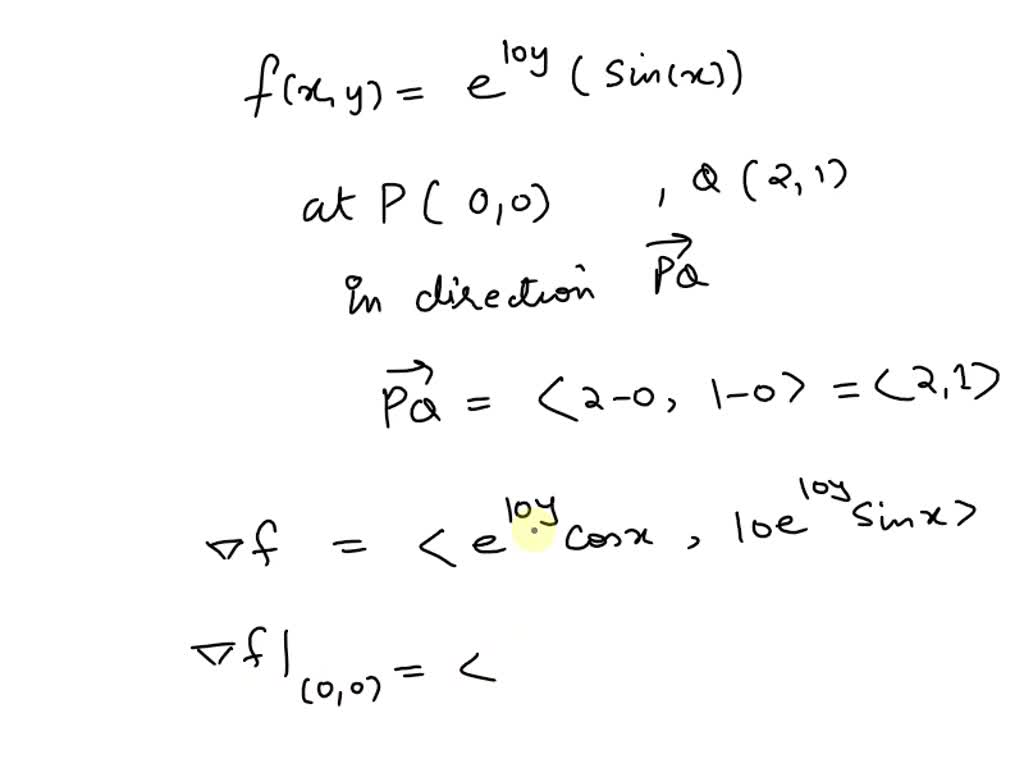 f(x,y) = e^{10y} (sin(x))
at P(0,0) , Q(2,1)
in direction \overrightarrow{PQ}
\overrightarrow{PQ} = <2-0, 1-0> = <2,1>
∇f = <e^{10y} cosx, 10e^{10y} sinx>
∇f|_{(0,0)} = <